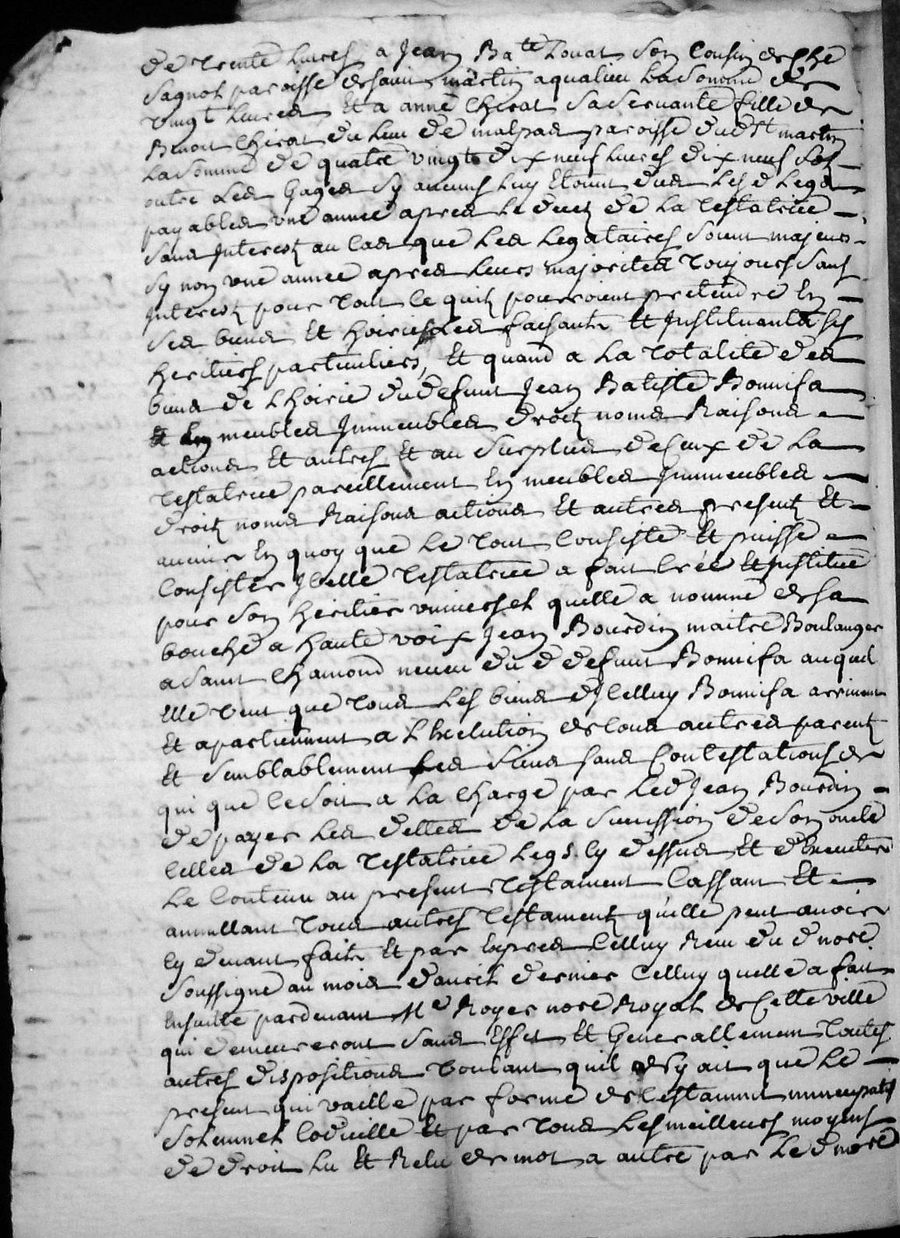 de trente livres a Jean Bate Douat son Cousin de chez
Sagnot paroisse de saint martin aqualieu La somme de
vingt livres Et a anne Chirat sa servante fille de
Benoit Chirat du lieu de malpas paroisse dud st martin
La somme de quatre vingts dix neuf livres dix neuf sols
outre Les Gages sy aucuns luy Etoint dus Lesd Legs
payables une année apres Le decez de La testatrice
sans Interest au Cas que Les Legataires soient majeurs
sy non une année apres leurs majorités toujours sans
Interest pour tout ce quils pourroient pretendre En
ses biens Et hoiries Les faisante Et Instituante ses
heritiers particuliers, Et quand a La totalité des
biens de Lhoirie du defunt Jean Batiste Bonnifa
En meubles Immeubles droits noms Raisons
actions Et autres Et au surplus de Ceux de La
testatrice pareillement En meubles Immeubles
droits noms Raisons actions Et autres presents Et
avenir En quoy que Le tout Consiste Et puisse
Consister Icelle testatrice a fait créé Et Institué
pour son heritier universel quelle a nommé de sa
bouche a haute voix Jean Bourdin maitre Boulanger
a saint Chamond neveu dud defunt Bonnifa auquel
Elle veut que tous Les biens dIcelluy Bonnifa arrivent
Et apartiennent a LExclution de tous autres parents
Et semblablement Les siens sans Contestations de
qui que Ce soit a La Charge par Led Jean Bourdin
de payer Les dettes de La sucession de son oncle
Celles de La testatrice Legs Cy dessus Et dExecuter
Le Contenu au present testament Cassant Et
annullant tous autres testaments qu'elle peut avoir
Cy devant faits Et par Exprès Celluy Reçu dud nore
soussigné au mois davril dernier Celluy quelle a fait
Ensuitte pardevant Me Royer nore Royal de Cette ville
qui demeureront sans Effet Et Generallement toutes
autres dispositions voulant quil ny ait que Le
present qui vaille par forme de testament nuncupatif
solemnel Codicille Et par tous Les meilleurs moyens
de droit Lu Et Relu de mot a autre par Led nore